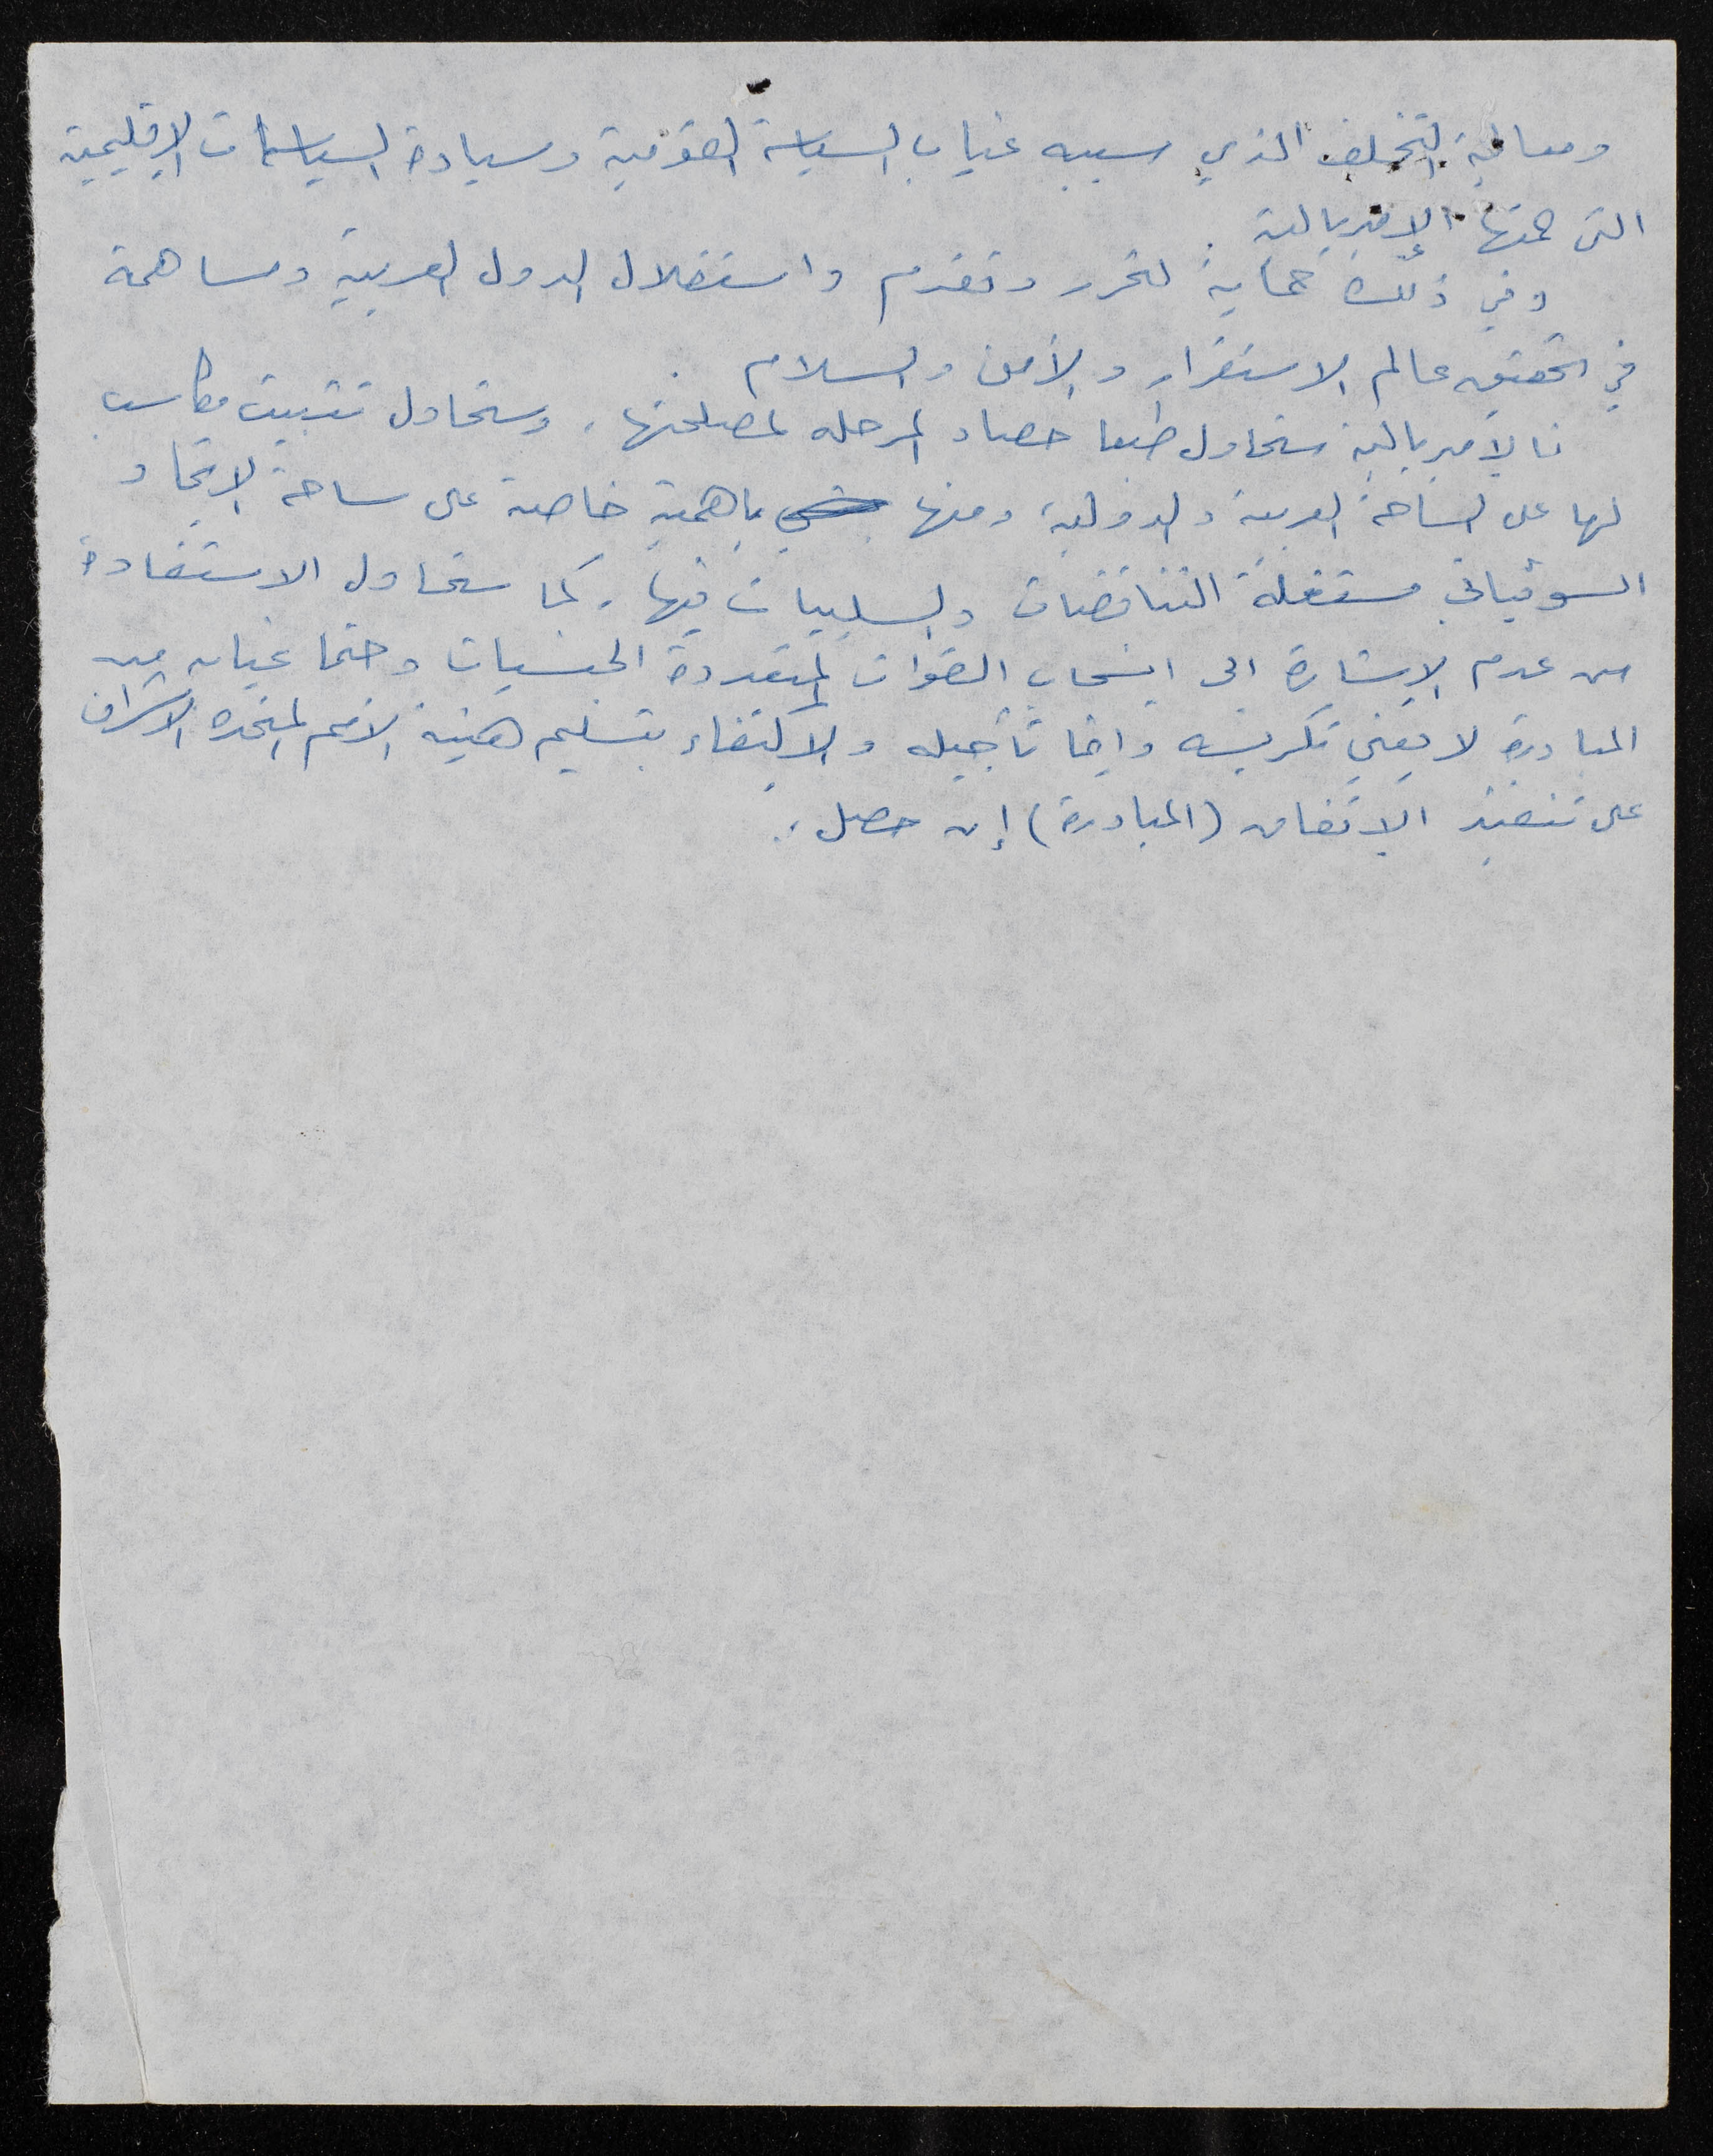 ومعالجة التخلف الذي سببه غياب السياسة القومية وسيادة السياسات الإقليمية
التي حمتها الإمبريالية.
وفي ذلك حماية لتحرر وتقدم واستقلال الدول العربية ومساهمة
في تحقيق عالم الاستقرار والأمن والسلام.
فالإمبريالية ستحاول طبعا حصاد المرحله لمصلحتها، وستحاول تثبيت مكاسب
لها على الساحة العربية والدولية، ومنها بأهمية خاصة على ساحة الاتحاد
السوڤياتي مستغلة التناقضات والسلبيات فيها. كما ستحاول الاستفادة
من عدم الإشارة الى انسحاب القوات المتعددة الجنسيات وحتما غيابه من
المبادرة لا يعني تكريسه وإنما تأجيله والاكتفاء بتسليم هيئة الأمم المتحده الاشراف
على تنفيذ الاتفاق (المبادرة) إن حصل.